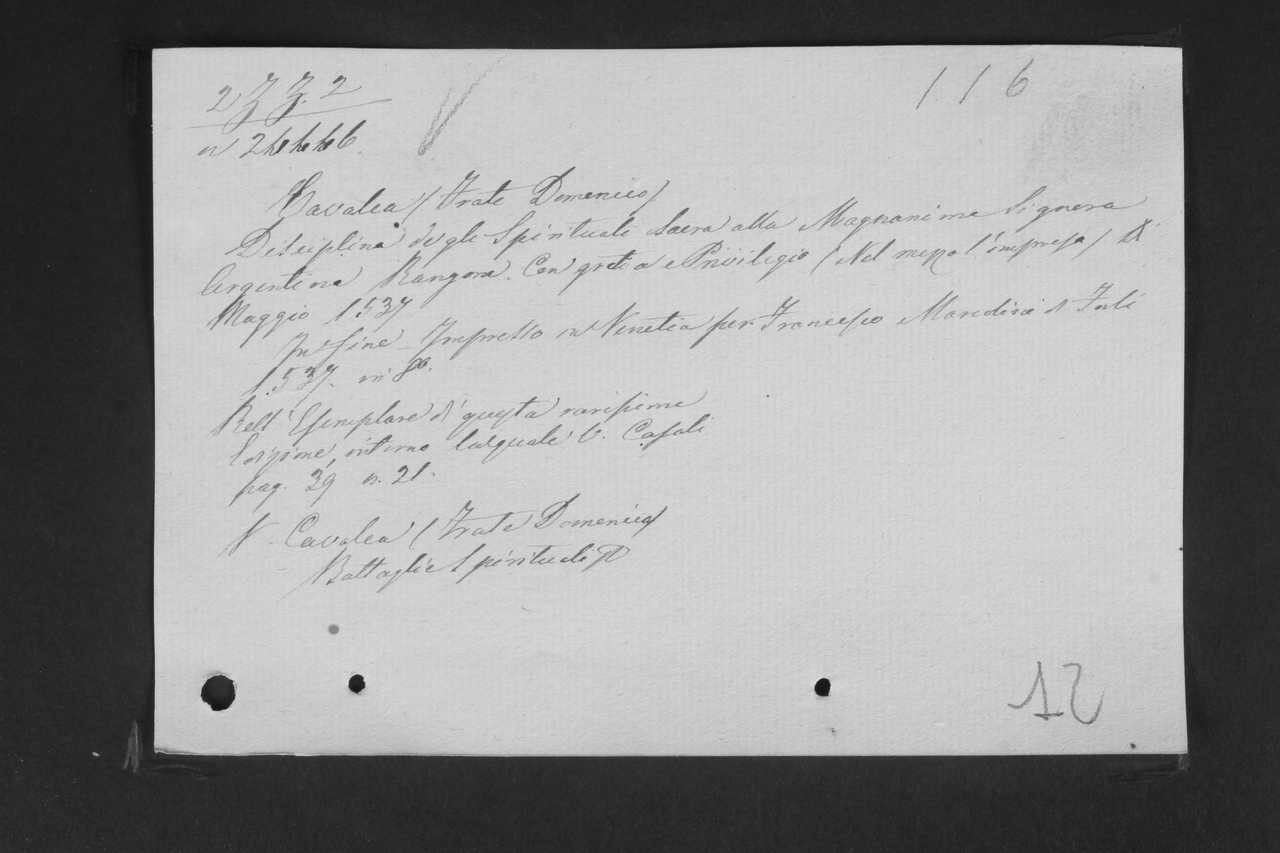 2 Z Z. 2
116
n 24446.
Cavalca (Frate Domenico)
Disciplina degli Spirituali Sacra alla Magnanima Signora
Argentina Rangona. Con gratia e Privilegio (Nel mezzo l'impresa) A
Maggio 1537
In fine - Impresso in Venetia per Francesco Marcolini di Forli
1537. in 8o.
Bell'Esemplare di questa rarissima
Edizione, intorno la quale V. Casali
pag. 39 n. 21.
V. Cavalca (Frate Domenico)
Battaglie Spirituali
12